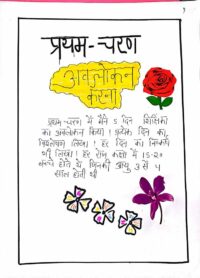 प्रथम-चरण
अवलोकन
करना
प्रथम-चरण में मैंने 5 दिन
का अवलोकन किया। प्रत्येक दिन का
लिखा। हर दिन का निष्कर्ष
भी लिखा। हर रोज कक्षा में 15-20
बच्चे होते थे जिनकी आयु 3 से 4
साल होती थी